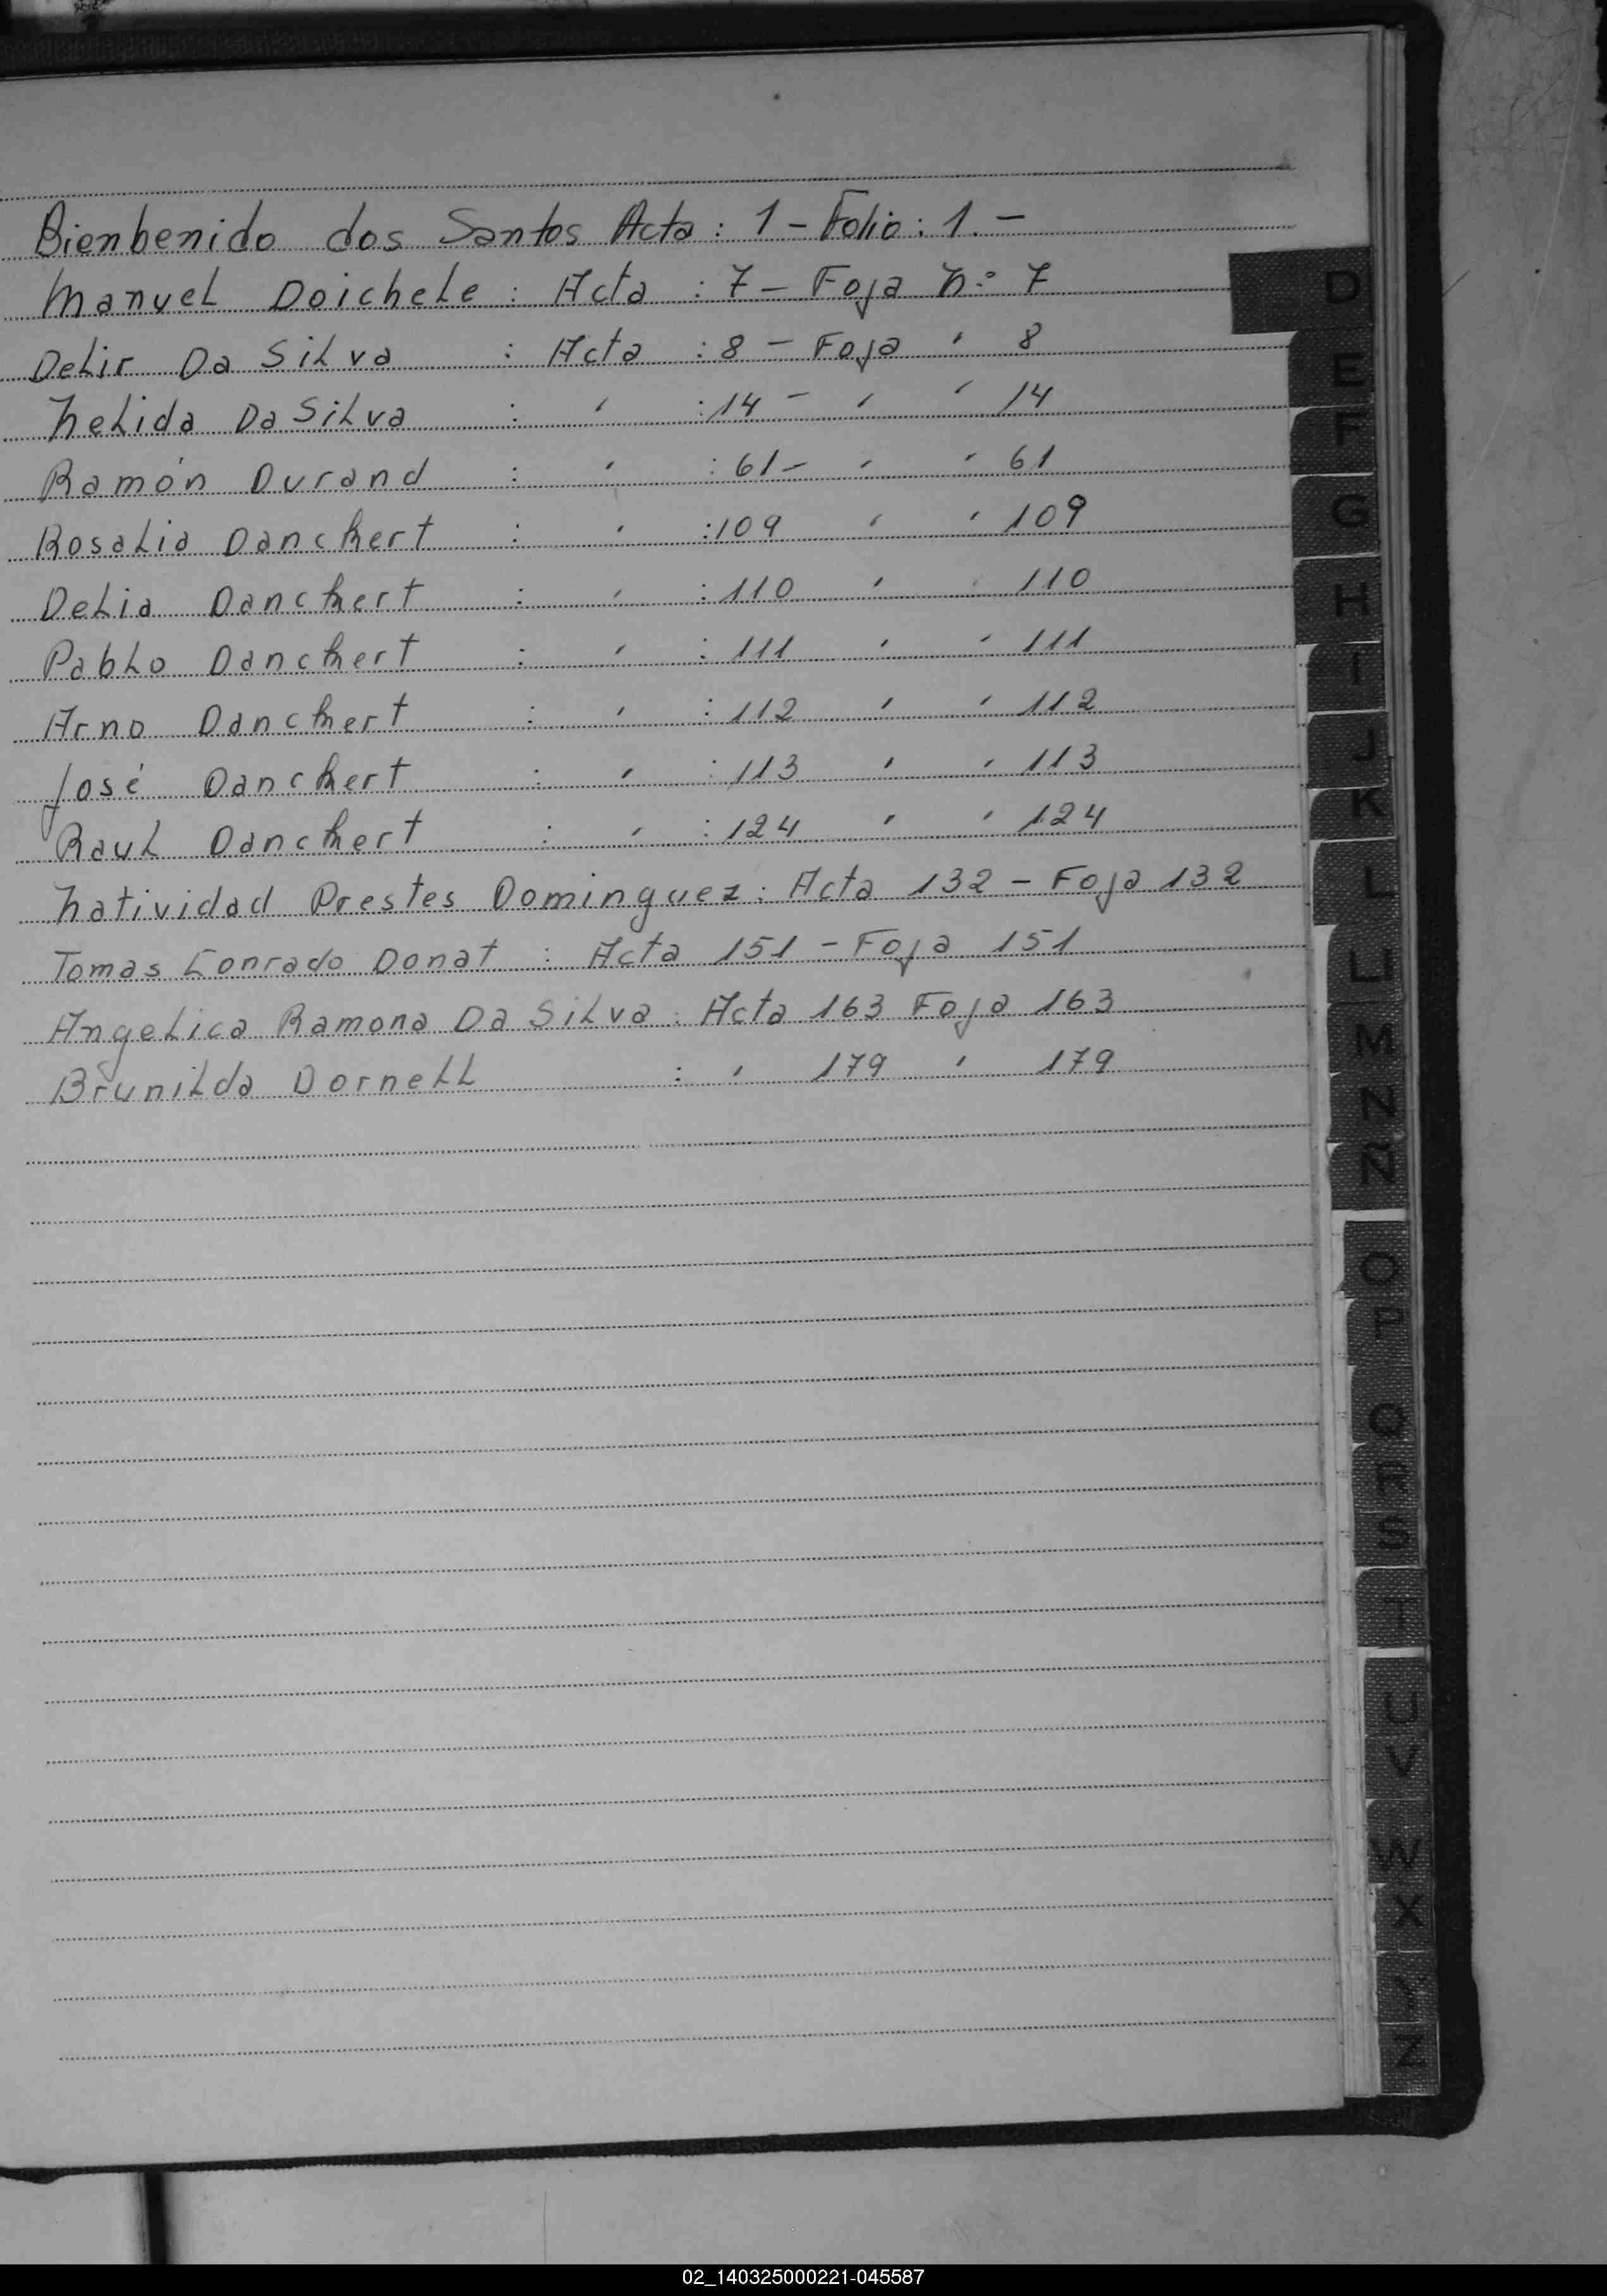 Bienbenido dos Santos Acta: 1 - Folio: 1. -
Manuel Doichele : Acta : 7 - Foja n: 7
Delir Da Silva : Acta : 8 - Foja " 8
Nelida Da Silva : " : 14 - " " 14
Ramón Durand : " : 61 - " " 61
Rosalia Danckert : " : 109 " " 109
Delia Danckert : " : 110 " " 110
Pablo Danckert : " : 111 " " 111
Arno Danckert : " : 112 " " 112
José Danckert : " : 113 " " 113
Raul Danckert : " : 124 " " 124
Natividad Prestes Dominguez : Acta 132 - Foja 132
Tomas Conrado Donat : Acta 151 - Foja 151
Angelica Ramona Da Silva : Acta 163 Foja 163
Brunilda Dornell : " 179 " 179
D
E
F
G
H
I
J
K
L
LL
M
N
Ñ
O
P
Q
R
S
T
U
V
W
X
Y
Z
02_140325000221-045587